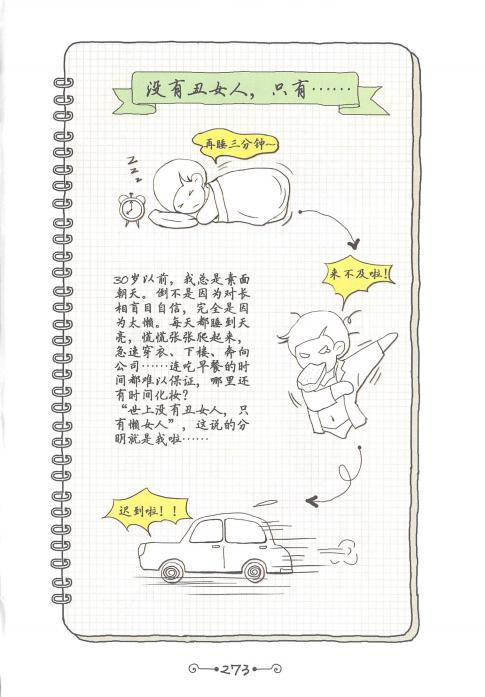 没有丑女人，只有……
再睡三分钟~
ZZZ
来不及啦！
30岁以前，我总是素面
朝天。倒不是因为对长
相盲目自信，完全是因
为太懒。每天都睡到天
亮，慌慌张张爬起来，
急速穿衣、下楼、奔向
公司……连吃早餐的时
间都难以保证，哪里还
有时间化妆？
“世上没有丑女人，只
有懒女人”，这说的分
明就是我啦……
迟到啦！！
273